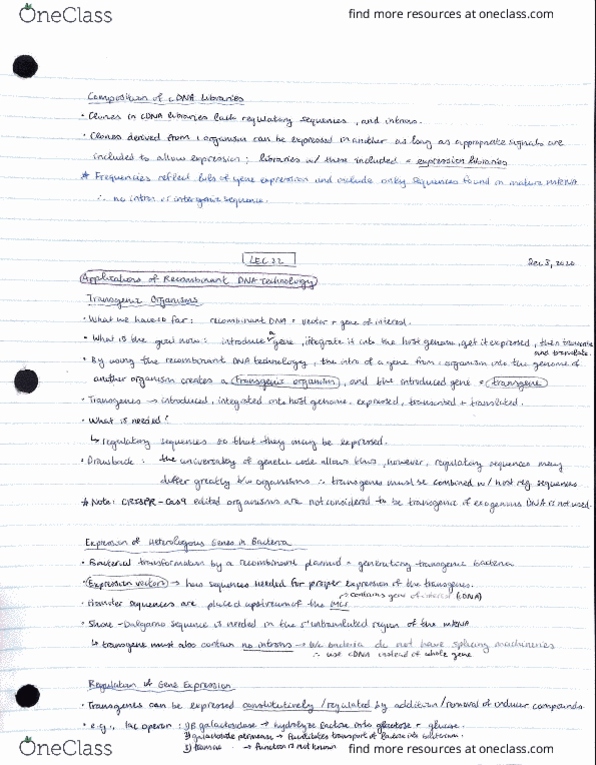 OneClass
find more resources at oneclass.com
Composition of cDNA libraries
• Clones in cDNA libraries lack regulatory sequences, and introns.
• Clones derived from 1 organism can be expressed in another as long as appropriate signals are
included to allow expression; libraries w/ these included = expression libraries
* Frequencies reflect lvls of gene expression and include only sequences found in mature mRNA
∴ no intron or intergenic sequence.
LEC 22
Dec 3, 2020
Applications of Recombinant DNA Technology
Transgenic Organisms
• What we have so far: recombinant DNA = vector + gene of interest.
• What is the goal now: introduce gene, integrate it into the host genome, get it expressed, then
and translate.
• By using the recombinant DNA technology, the intro of a gene from 1 organism into the genome of
another organism creates a transgenic organism, and the introduced gene = transgene
• Transgenes → introduced, integrated into host genome, expressed, transcribed + translated.
• What is needed?
↳ regulatory sequences so that they may be expressed.
• Drawback: the universality of genetic code allows this, however, regulatory sequences may
differ greatly b/w organisms ∴ transgenes must be combined w/ host reg sequences
* Note: CRISPR-Cas9 edited organisms are not considered to be transgenic if exogenous DNA is not used.
Expression of Heterologous Genes in Bacteria
• Bacterial transformation by a recombinant plasmid = generating transgenic bacteria
• Expression vectors → have sequences needed for proper expression of the transgenes.
→ contains gene of interest (cDNA)
• Promoter sequences are placed upstream of the MCS
• Shine-Dalgarno sequence is needed in the 5' untranslated region of the mRNA
↳ transgene must also contain no introns → b/c bacteria do not have splicing machineries
∴ use cDNA instead of whole gene
Regulation of Gene Expression
• Transgenes can be expressed constitutively/regulated by addition/removal of inducer compounds.
• e.g., lac operon: 1) B galactosidase → hydrolyze lactose into glactose + glucose.
2) galactoside permease → facilitates transport of lactose into bacterium.
3) → function is not known
OneClass
find more resources at oneclass.com